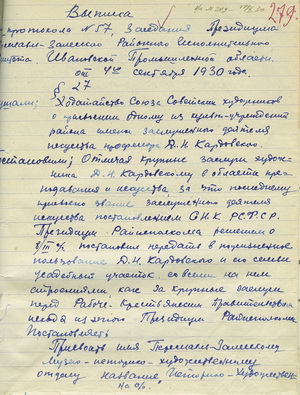 279.
Выписка
из протокола №57, Заседания Президиума
Переславль-Залесского Районного Исполнительного
Комитета Ивановской Промышленной области.
от 4го сентября 1930 года.
§ 27
Слушали: Ходатайство Союза Советских художников
о присвоении одному из
района имени заслуженного деятеля
искусства профессора Д.Н. Кардовского.
Постановили: Отмечая крупные заслуги худож-
ника Д.Н. Кардовского в области пре-
подавания и искусства, за что последнему
присвоено звание заслуженного деятеля
искусства постановлением С.Н.К. РСФСР.
Президиум Райисполкома решением от
постановил передать в пожизненное
пользование Д.Н. Кардовского и его семьи
усадебный участок, со всеми на нем
строениями, как за крупные заслуги
перед Рабоче-Крестьянским Правительством
исходя из этого Президиум Райисполкома
Постановляет:
Присвоить имя Переславль-Залесскому
музею-историко-художественному
отделу название "Историко-Художествен-
на об.